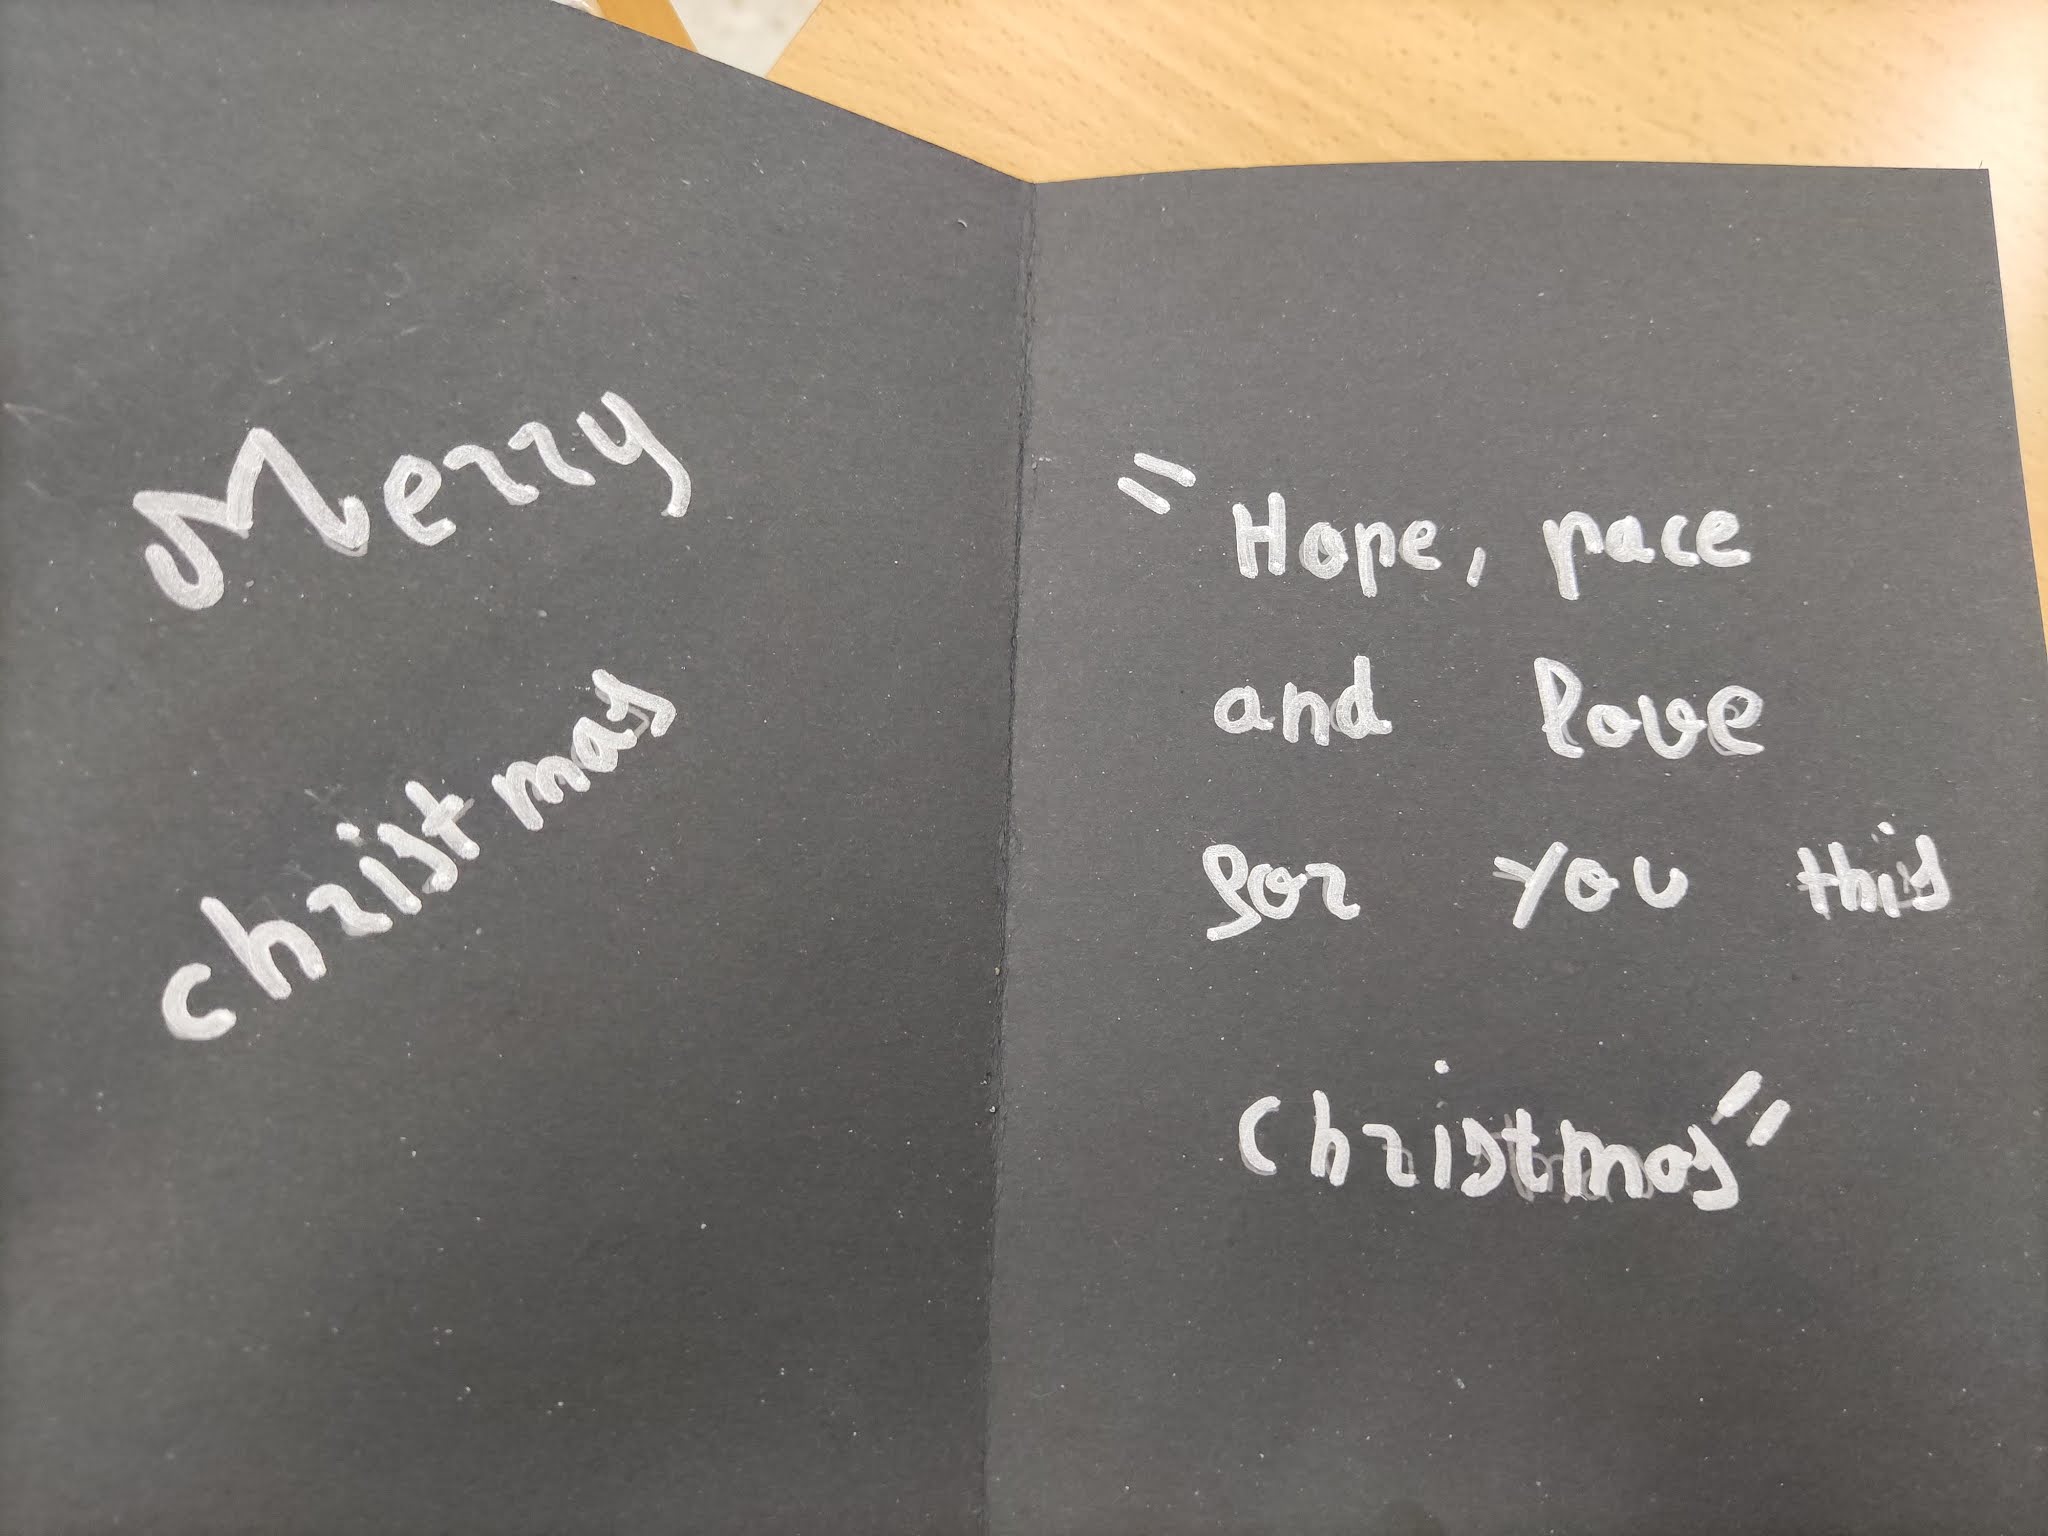 Merry
christmas
"Hope, pace
and love
for you this
christmas"